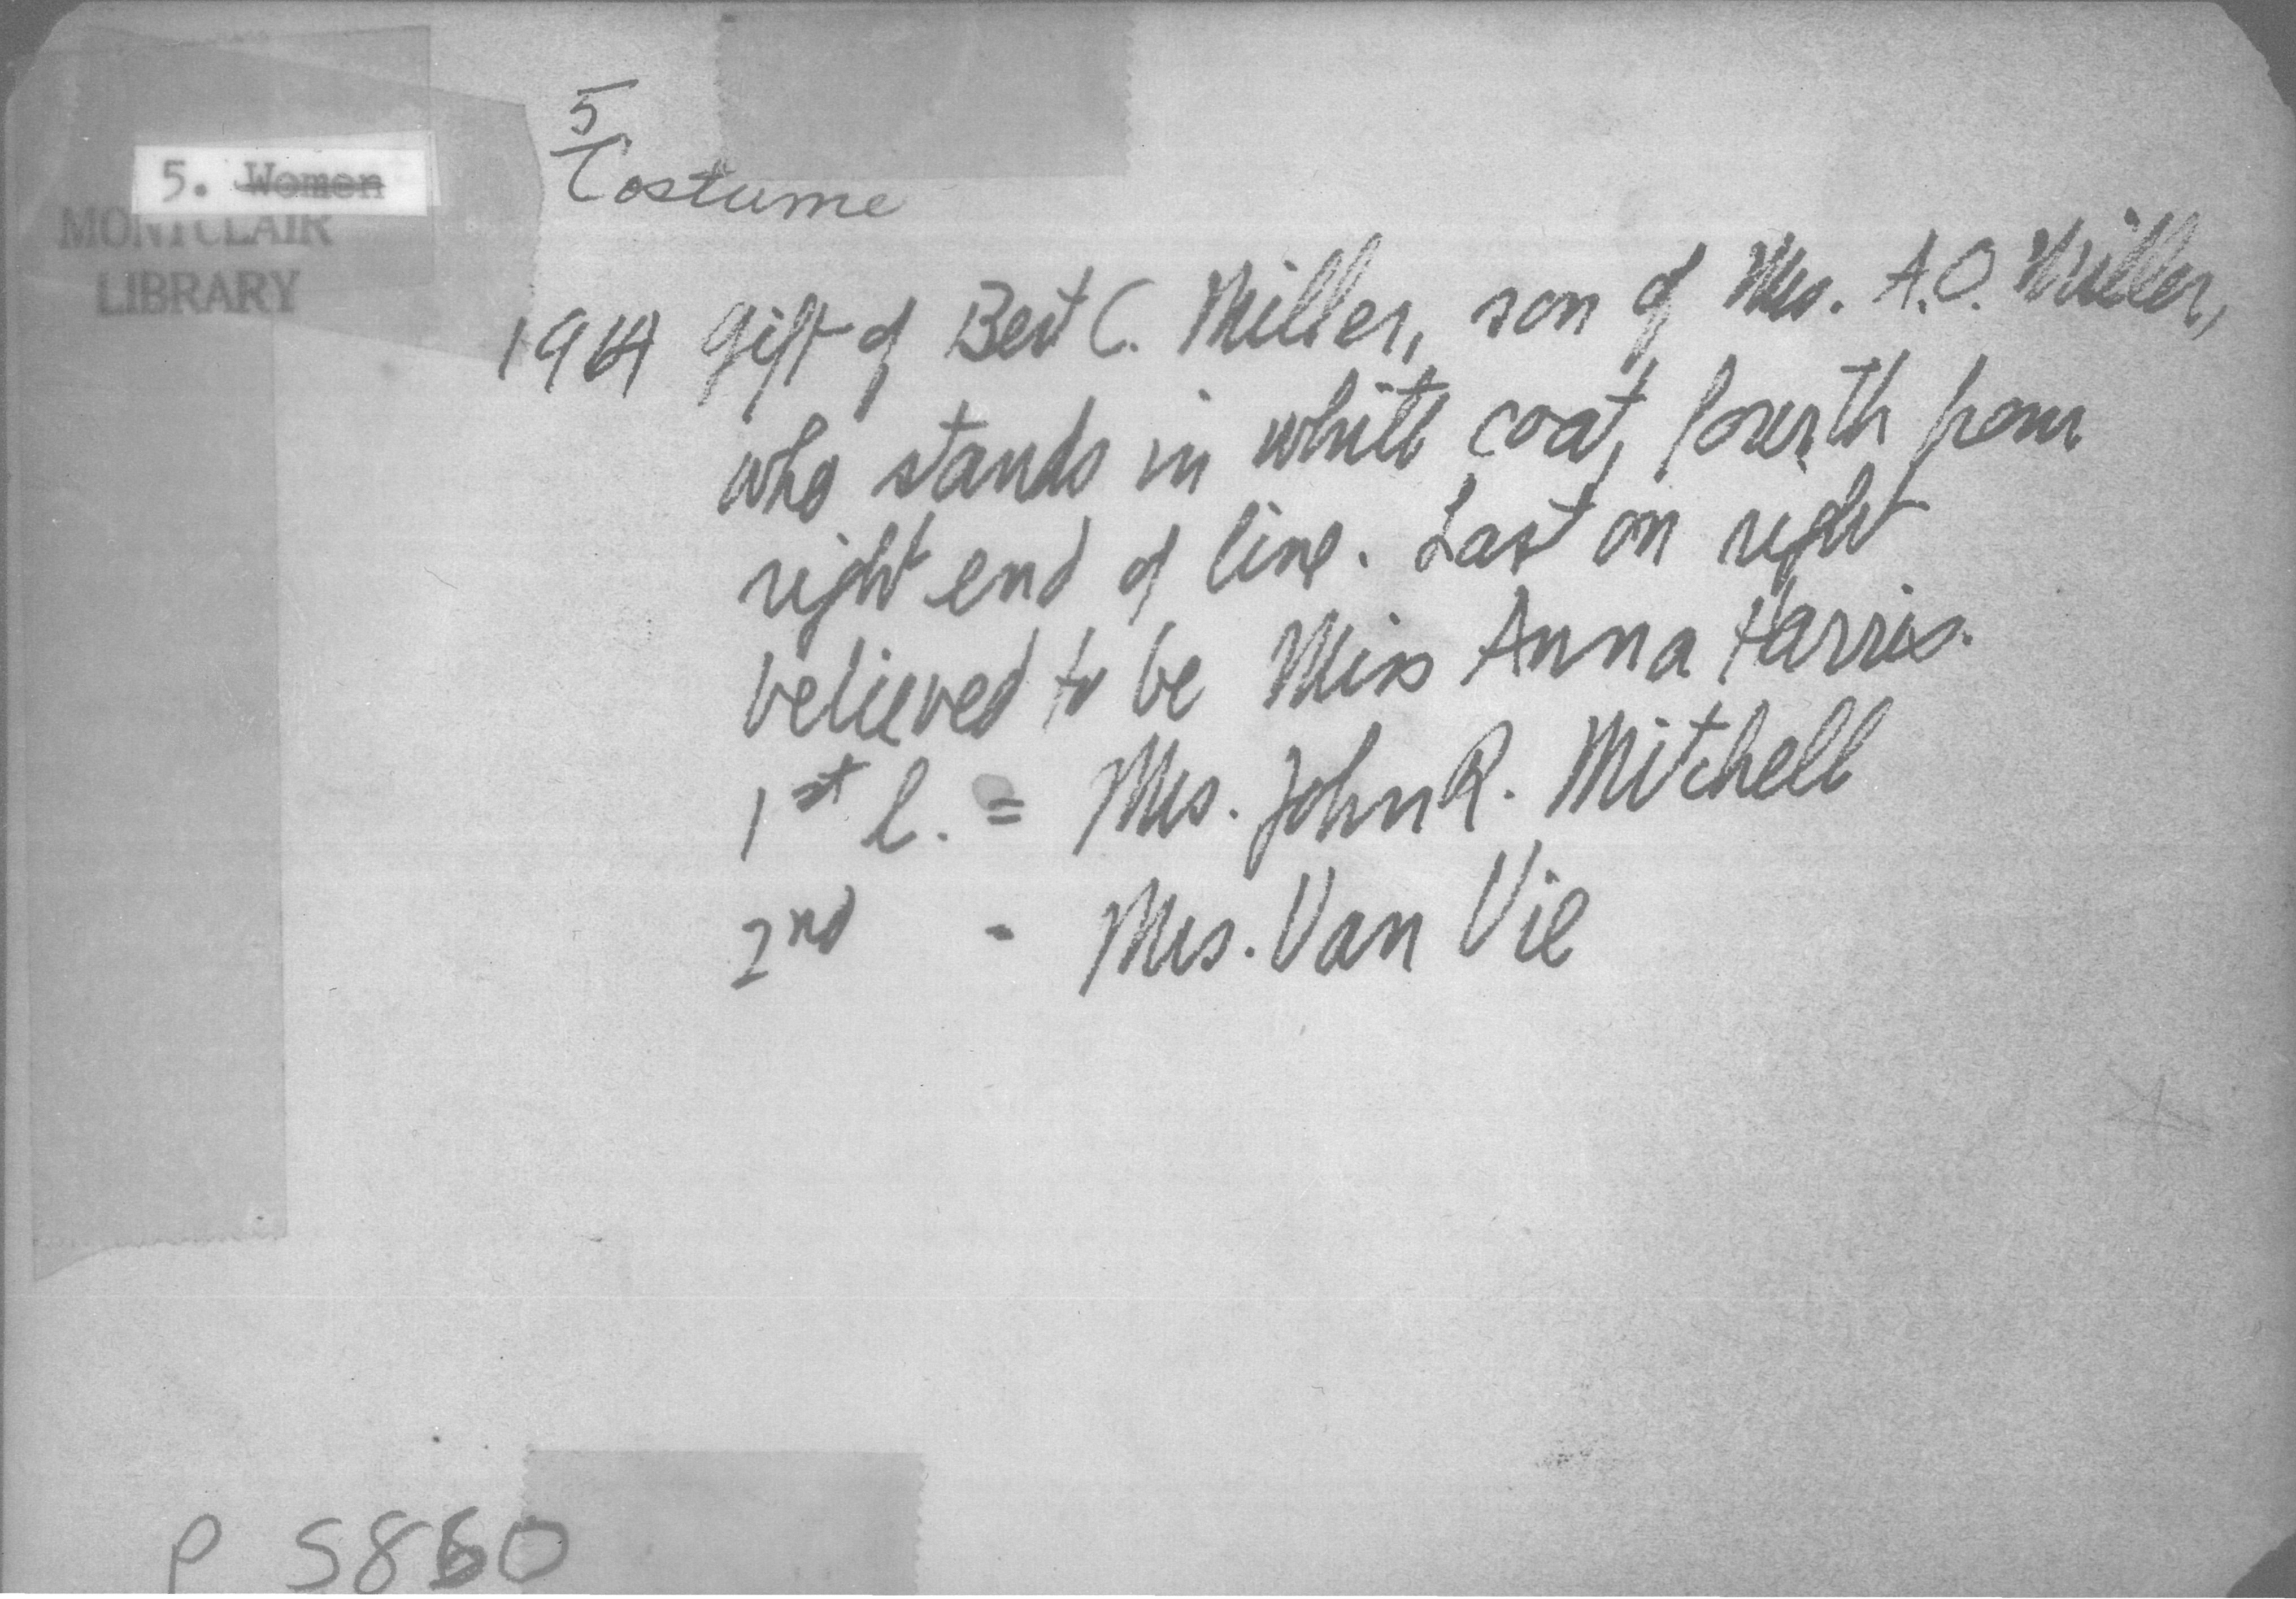 5
Costume
5. Women
MONTCLAIR
LIBRARY
gift of Bert C. Miller, son of Mrs. A.O. Miller,
who stands in white coat, fourth from
right end of line. Last on right
believed to be Miss Anna Harris.
1st l. = Mrs. John R. Mitchell
2nd - Mrs. Van Vie
P 5860